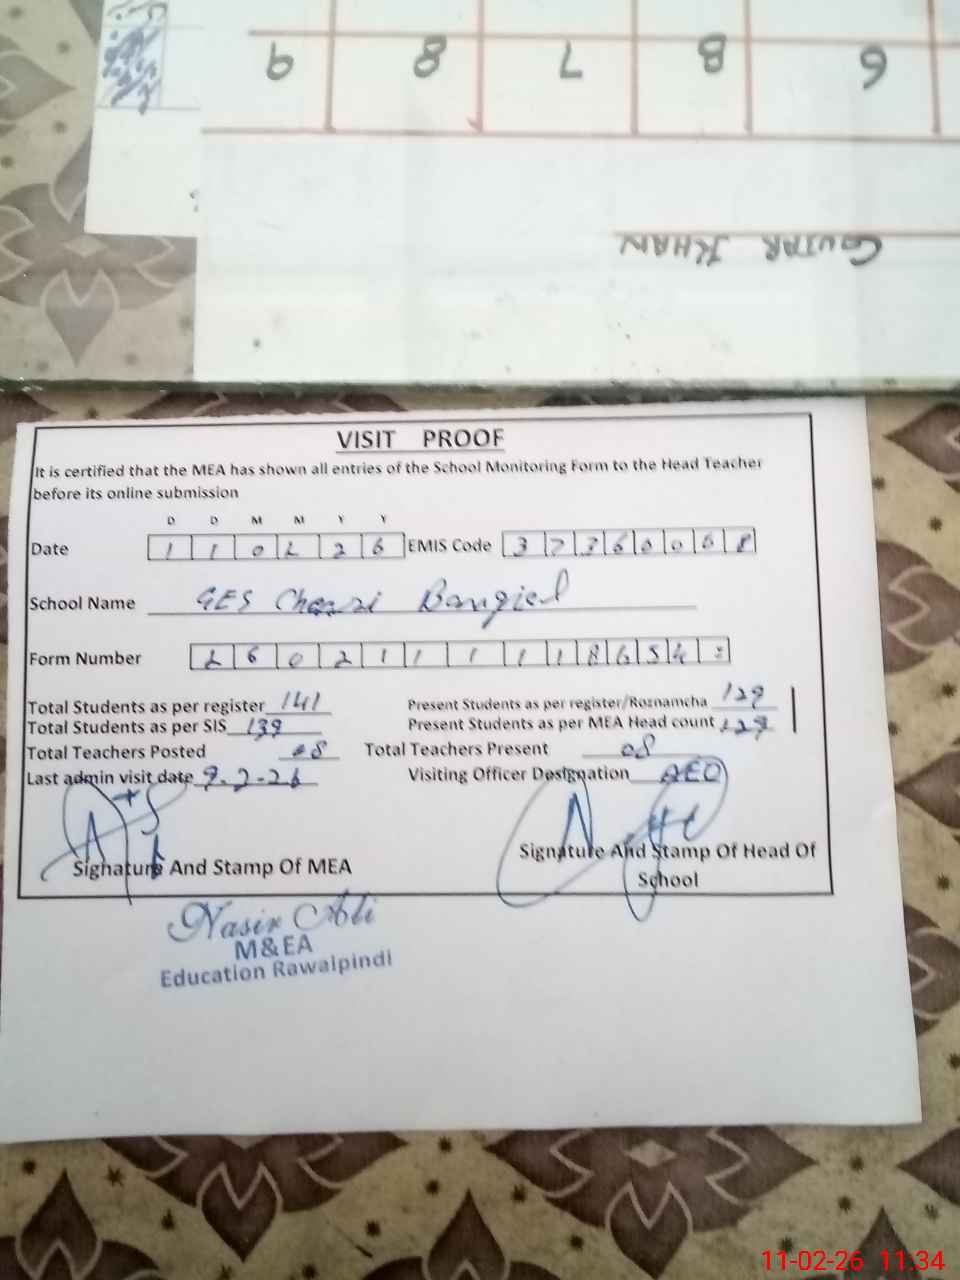 9 8 7 8 6
GUJAR KHAN
VISIT PROOF
It is certified that the MEA has shown all entries of the School Monitoring Form to the Head Teacher
before its online submission
D D M M Y Y
Date 1 1 0 2 2 6 EMIS Code 3 7 3 6 0 0 6 8
School Name GES Bangial
Form Number 2 6 0 2 1 1 1 1 1 8 6 5 4
Total Students as per register 141 Present Students as per register/Roznamcha 129
Total Students as per SIS 139 Present Students as per MEA Head count 129
Total Teachers Posted 08 Total Teachers Present 08
Last admin visit date 9-2-26 Visiting Officer Designation AEO
Signature And Stamp Of MEA Signature And Stamp Of Head Of
School
Nasir Ali
M&EA
Education Rawalpindi
11-02-26 11:34